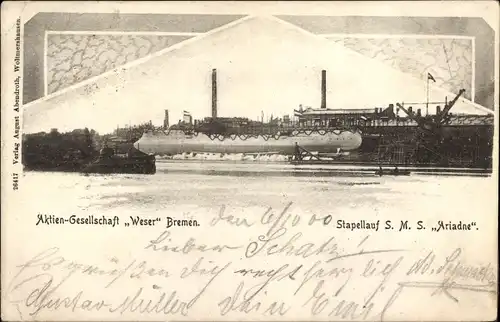 26417 Verlag August Abendroth, Woltmershausen.
Aktien-Gesellschaft „Weser" Bremen.
Stapellauf S. M. S. „Ariadne".
den 6/10 00
Lieber Schatz!
Es grüßen Dich recht herzlich
Gustav Müller dein Emil